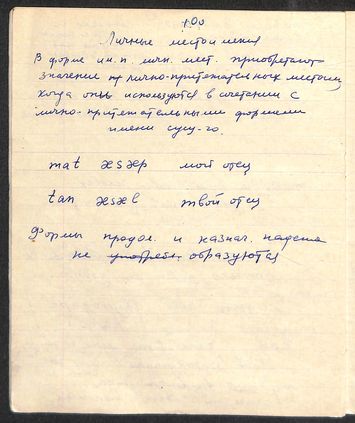 100
Личные местоимения
В форме им. п. личн. мест. приобретают
значение лично-притяжательных местоим.
когда они используются в сочетании с
лично-притяжательными формами
имени сущ-го.
mat æsæp мой отец
tan æsæl твой отец
Формы продол. и назнач. падежа
не употребл. образуются